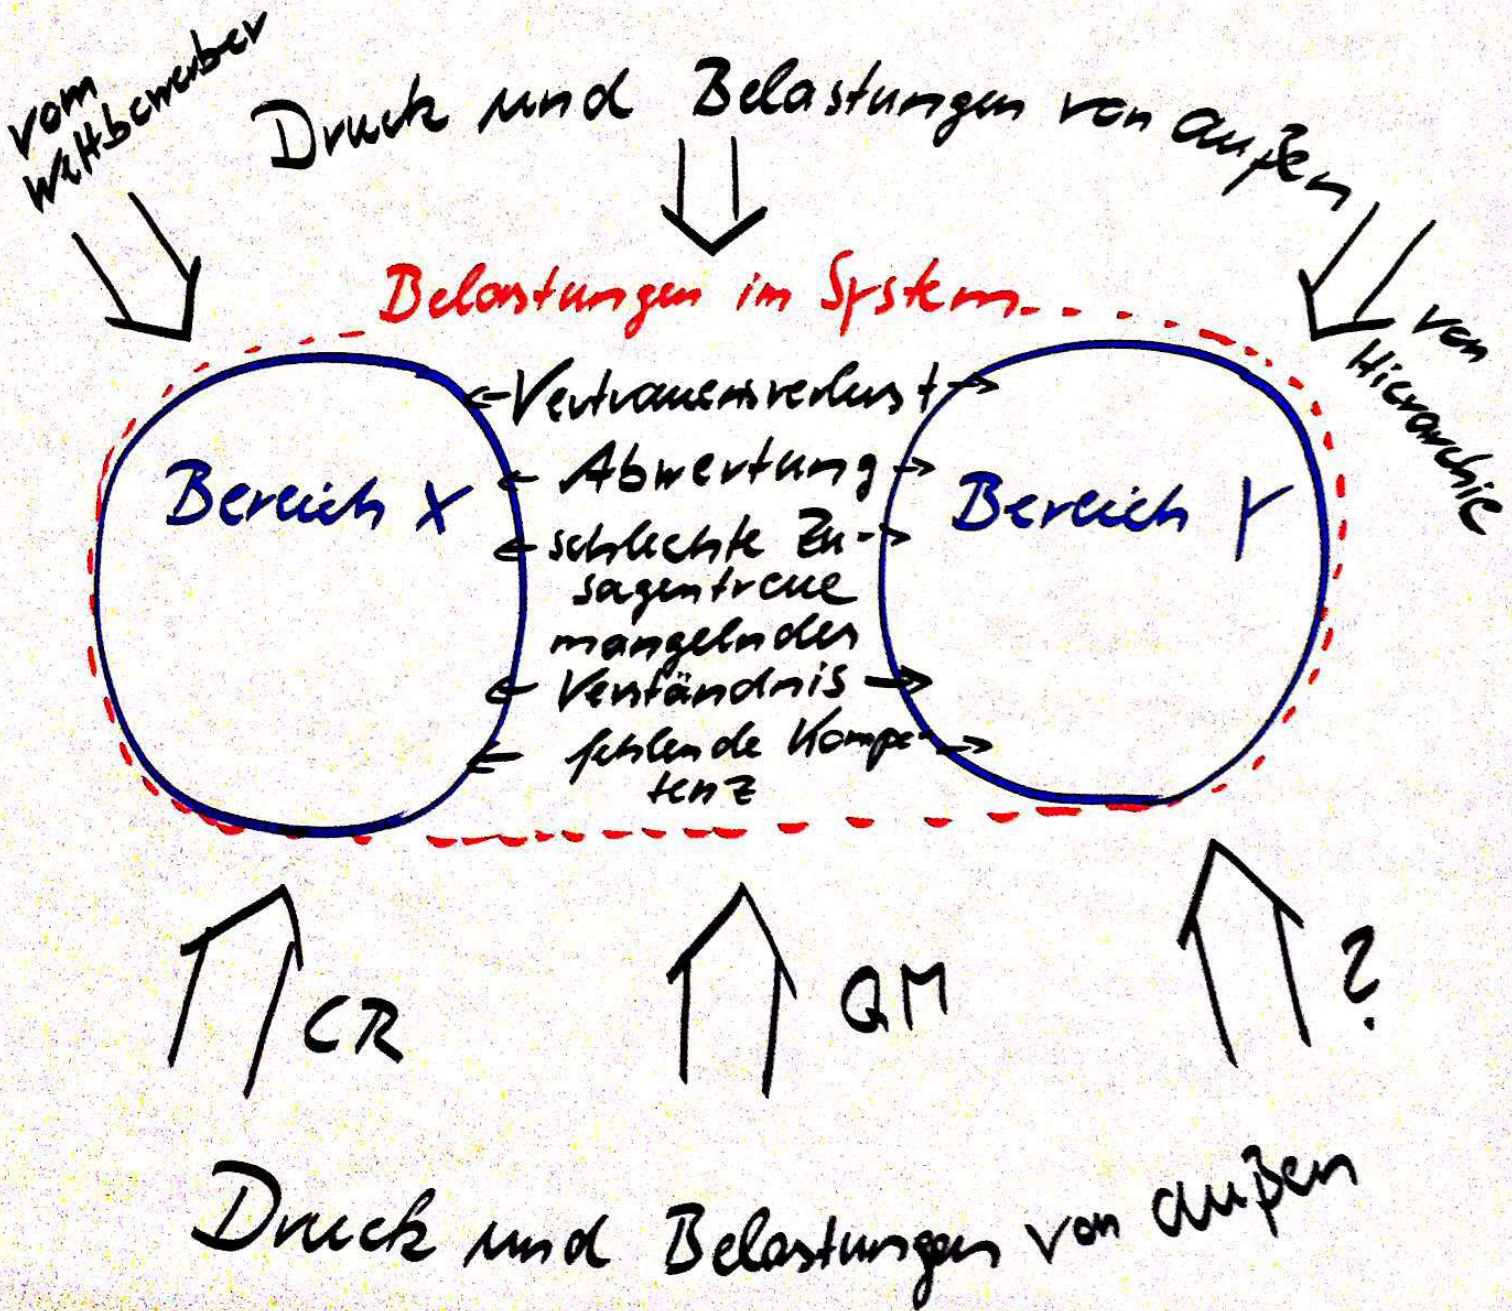 vom
Wettbewerber
Druck und Belastungen von außen
von
Hierarchie
Belastungen im System
Vertrauensverlust
Abwertung
Bereich X
Bereich Y
schlechte Zu-
sagentreue
mangelndes
Verständnis
fehlende Kompe-
tenz
CR
QM
?
Druck und Belastungen von außen